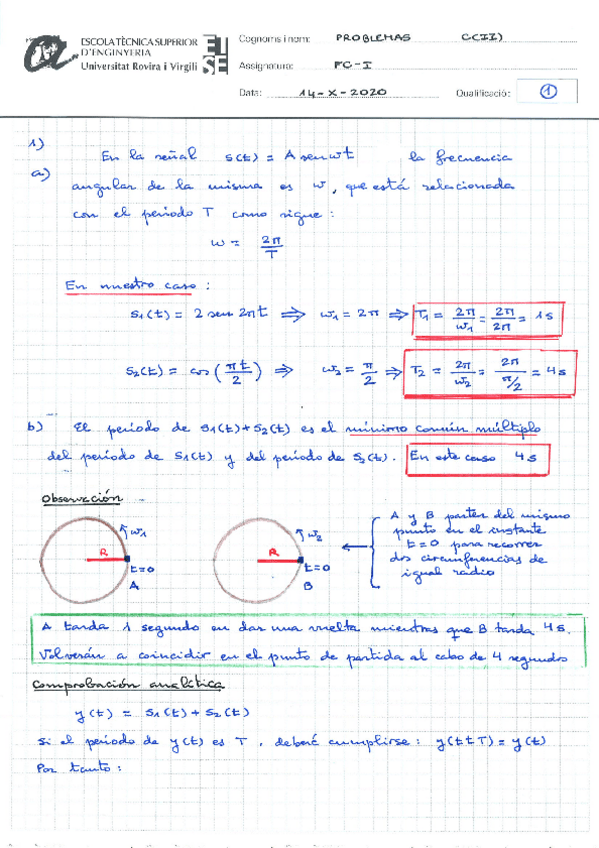 ESCOLA TÈCNICA SUPERIOR
D'ENGINYERIA
Universitat Rovira i Virgili
ETSE
Cognoms i nom: PROBLEMAS C(II)
Assignatura: FC-I
Data: 14-X-2020
Qualificació: 1
1)
a) En la señal s(t) = A sen wt la frecuencia
angular de la misma es w, que está relacionada
con el periodo T como sigue:
w = 2π/T
En nuestro caso:
s1(t) = 2 sen 2πt ⇒ w1 = 2π ⇒ T1 = 2π/w1 = 2π/2π = 1s
s2(t) = cos(πt/2) ⇒ w2 = π/2 ⇒ T2 = 2π/w2 = 2π/π/2 = 4s
b) El periodo de s1(t)+s2(t) es el mínimo común múltiplo
del periodo de s1(t) y del periodo de s2(t). En este caso 4s
Observación
w1
R
t=0
A
w2
R
t=0
B
A y B parten del mismo
punto en el instante
t=0 para recorrer
dos circunferencias de
igual radio
A tarda 1 segundo en dar una vuelta mientras que B tarda 4s.
Volverán a coincidir en el punto de partida al cabo de 4 segundos
Comprobación analítica
y(t) = s1(t) + s2(t)
Si el periodo de y(t) es T, deberá cumplirse: y(t+T) = y(t)
Por tanto: